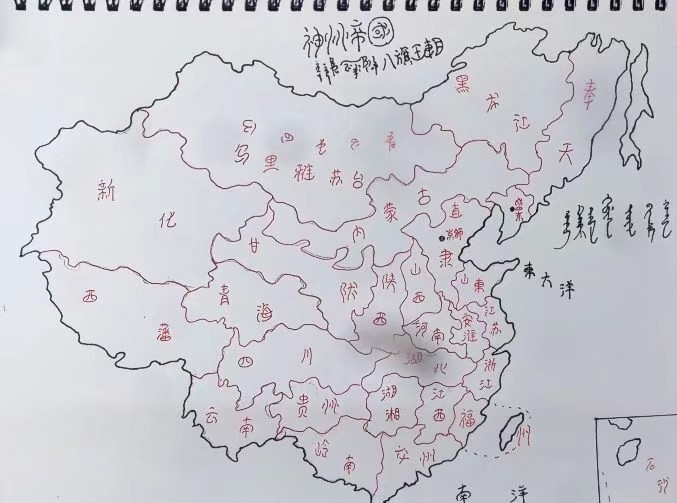 神州帝國
八旗
黑龙江
奉天
乌里雅苏台
新化
内蒙古
直隶
京师
盛京
甘
陇
陕西
山西
山东
东大洋
青海
西藩
河南
安淮
江苏
四川
湖北
浙江
云南
贵州
湖湘
江西
福州
岭南
南洋